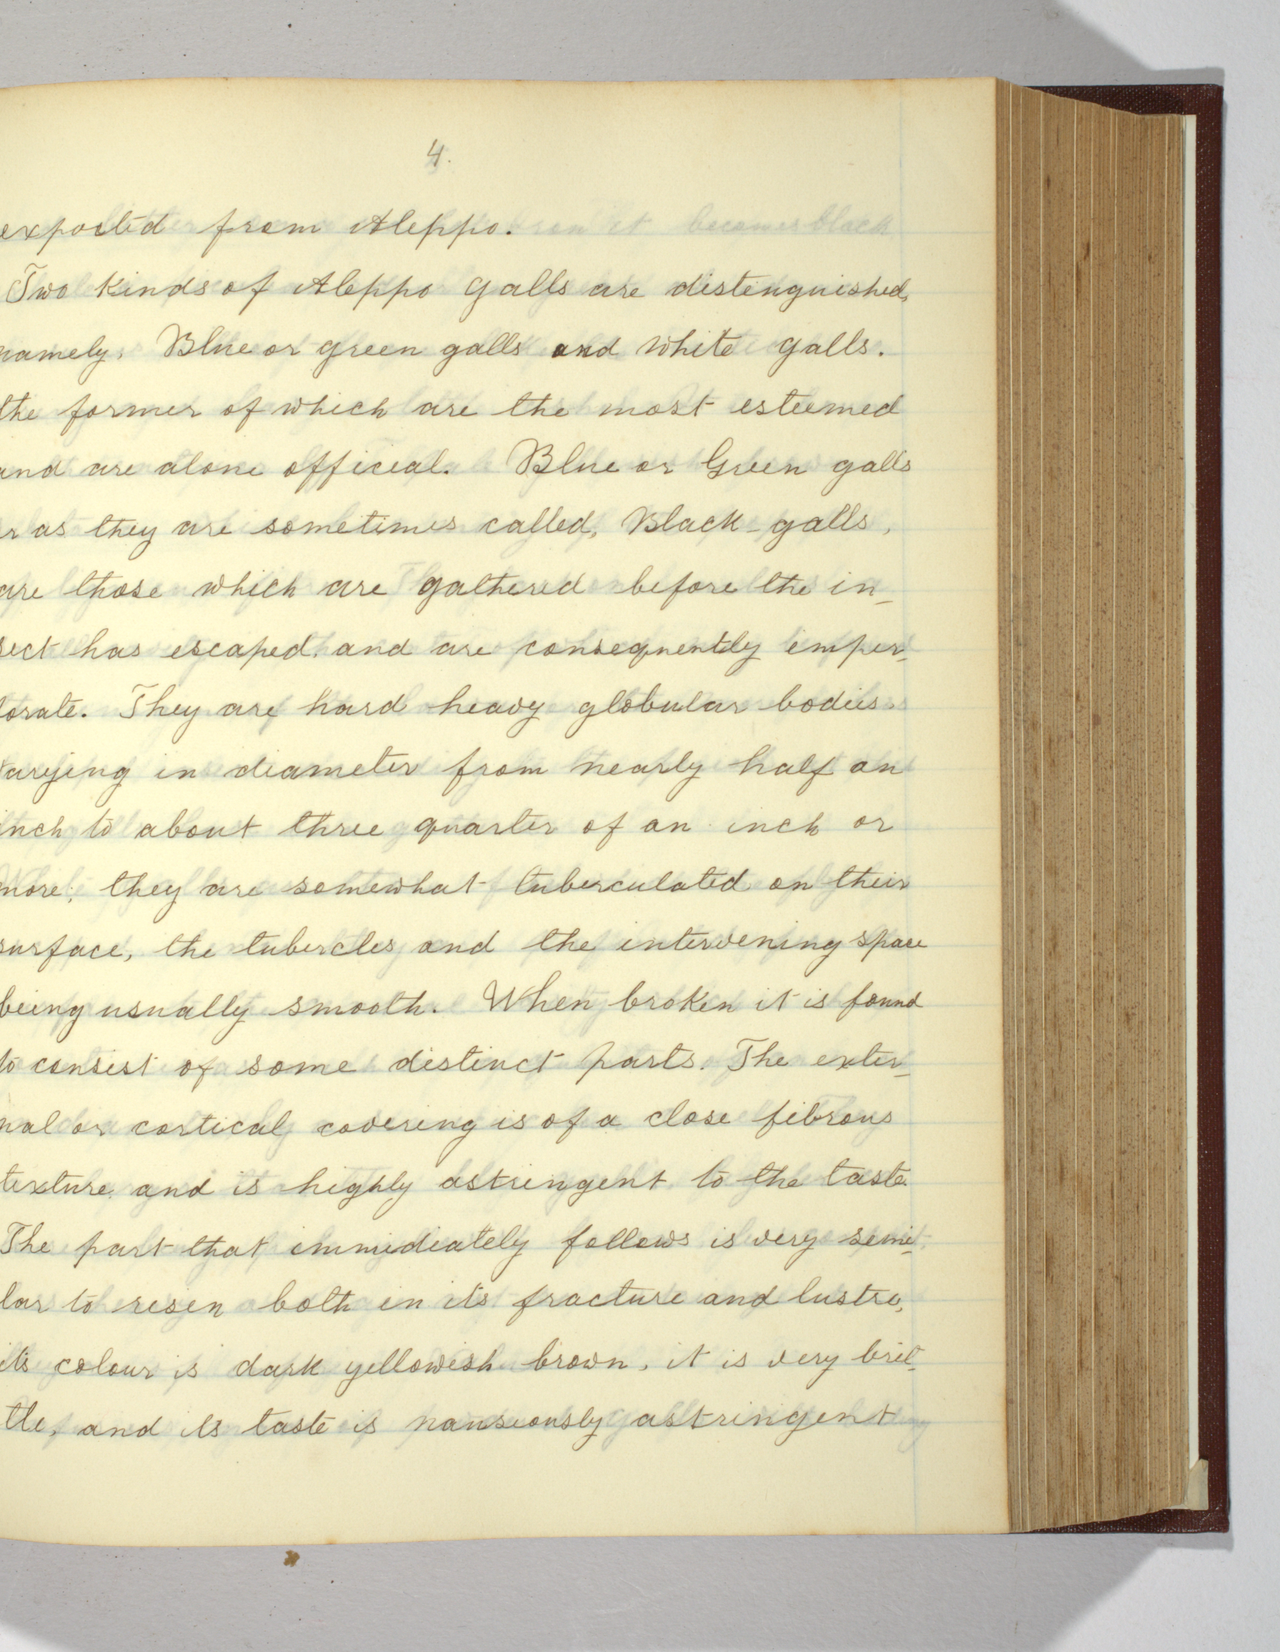 4.
exported from Aleppo.
Two kinds of Aleppo galls are distinguished,
namely, Blue or green galls and white galls.
the former of which are the most esteemed
and are alone official. Blue or Green galls
or as they are sometimes called, Black galls,
are those which are gathered before the in-
sect has escaped, and are consequently imper-
forate. They are hard heavy globular bodies
varying in diameter from nearly half an
inch to about three quarter of an inch or
more, they are somewhat tuberculated on their
surface, the tubercles and the intervening space
being usually smooth. When broken it is found
to consist of some distinct parts. The exter-
nal or cortical covering is of a close fibrous
texture and is highly astringent to the taste.
The part that immediately follows is very simi-
lar to resin both in its fracture and lustre,
its colour is dark yellowish brown, it is very brit-
tle, and its taste is nauseously astringent